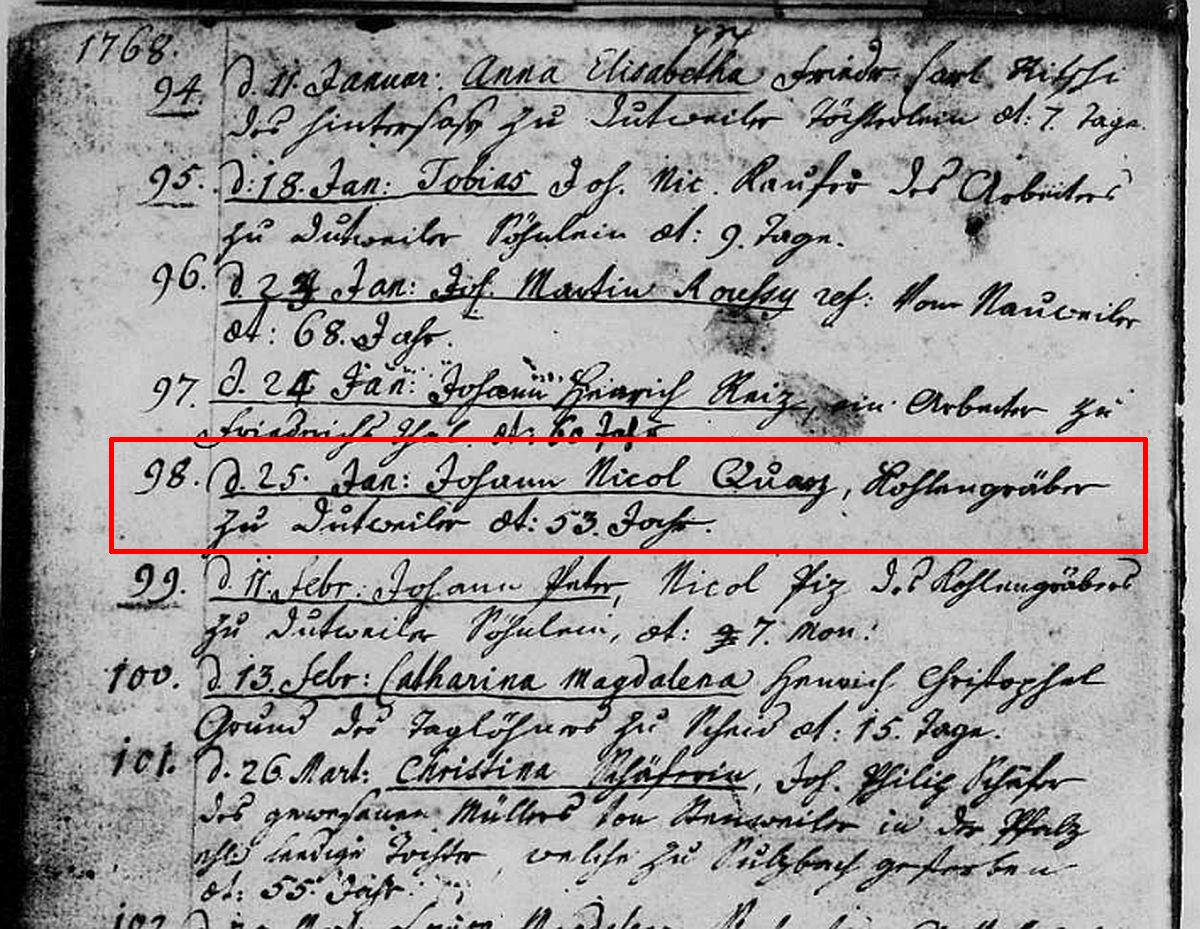 1768.
94. d. 11. Januar: Anna Elisabetha Friedr. Carl
des Hintersaß zu Dutweiler Töchterlein æt: 7. Tage.
95. d. 18. Jan: Tobias Joh. Nic. des Arbeiters
zu Dutweiler Söhnlein æt: 9. Tage.
96. d Jan: Joh. Martin Roussy ref: Vom Nauweiler
æt: 68. Jahr.
97. d. 24 Jan: Johann Heinrich Reiz, ein Arbeiter zu
Friedrichsthal. æt: 60 Jahr
98. d. 25. Jan: Johann Nicol Quarz, Kohlengräber
zu Dutweiler æt: 53. Jahr.
99. d. 11. Febr: Johann Peter, Nicol Piz des Kohlengräbers
zu Dutweiler Söhnlein, æt: 7. Mon:
100. d. 13. Febr: Catharina Magdalena Henrich Christophel
Grund des Taglöhners zu Scheid æt: 15. Tage.
101. d. 26 Mart: Christina Schäferin, Joh. Philip Schäfer
des gewesenen Müllers von in der Pfalz
ehl. ledige Tochter, welche zu Sulzbach gestorben
æt: 55. Jahr.
102.